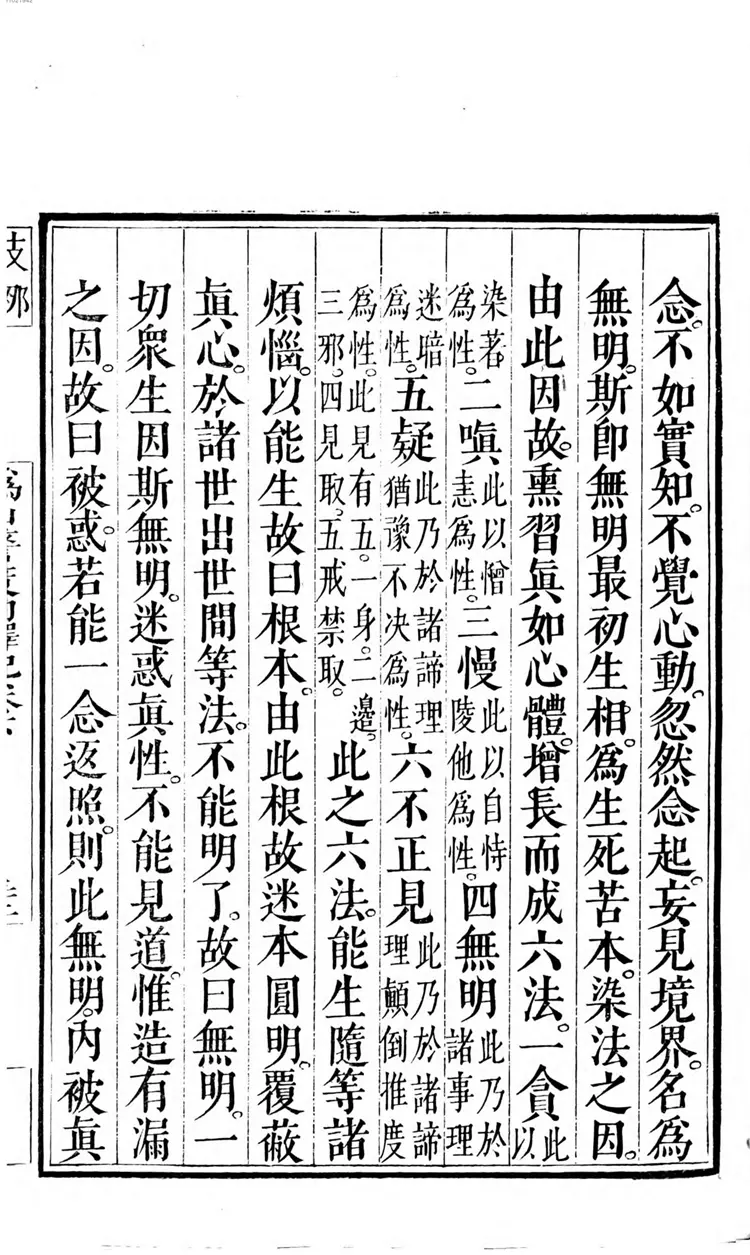 念。不如實知。不覺心動。忽然念起。妄見境界。名為
無明。斯即無明最初生相。為生死苦本。染法之因。
由此因故。熏習眞如心體。增長而成六法。一貪此以
染著為性。二嗔此以憎恚為性。三慢此以自恃陵他為性。四無明此乃於諸事理
迷暗為性。五疑此乃於諸諦理猶豫不決為性。六不正見此乃於諸諦理顚倒推度
為性。此見有五。一身。二邊。三邪。四見取。五戒禁取。此之六法。能生隨等諸
煩惱。以能生故曰根本。由此根故迷本圓明。覆蔽
眞心。於諸世出世間等法。不能明了。故曰無明。一
切眾生因斯無明。迷惑眞性。不能見道。惟造有漏
之因。故曰被惑。若能一念返照。則此無明。內被眞